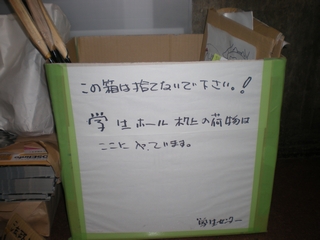 この箱は捨てないで下さい。!
学生ホール机上の荷物は
ここに入っています。
学生センター